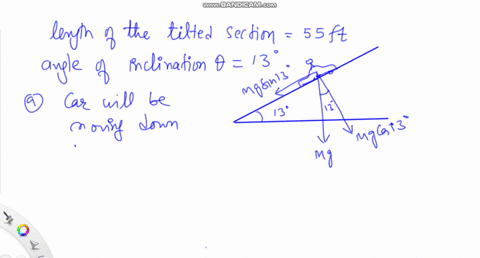 WWW.BANDICAM.COM
length of the tilted section = 55ft
angle of inclination θ = 13°
a) Car will be
moving down
Mg Sin 13°
13°
13°
Mg Cos 13°
Mg